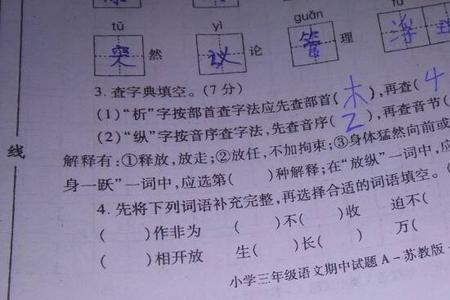 tū yì guǎn fú
突 然 议 论 管 理 浮
3. 查字典填空。(7 分)
(1)“析”字按部首查字法应先查部首( 木 ),再查( 4
(2)“纵”字按音序查字法,先查音序( Z ),再查音节(
解释有:①释放,放走;②放任,不加拘束;③身体猛然向前或
身一跃”一词中,应选第( )种解释;在“放纵”一词中,应
4. 先将下列词语补充完整,再选择合适的词语填空。(
( )作非为 ( )不( )收 迫不(
( )相开放 生( )长( ) 万(
小学三年级语文期中试题 A－苏教版
线